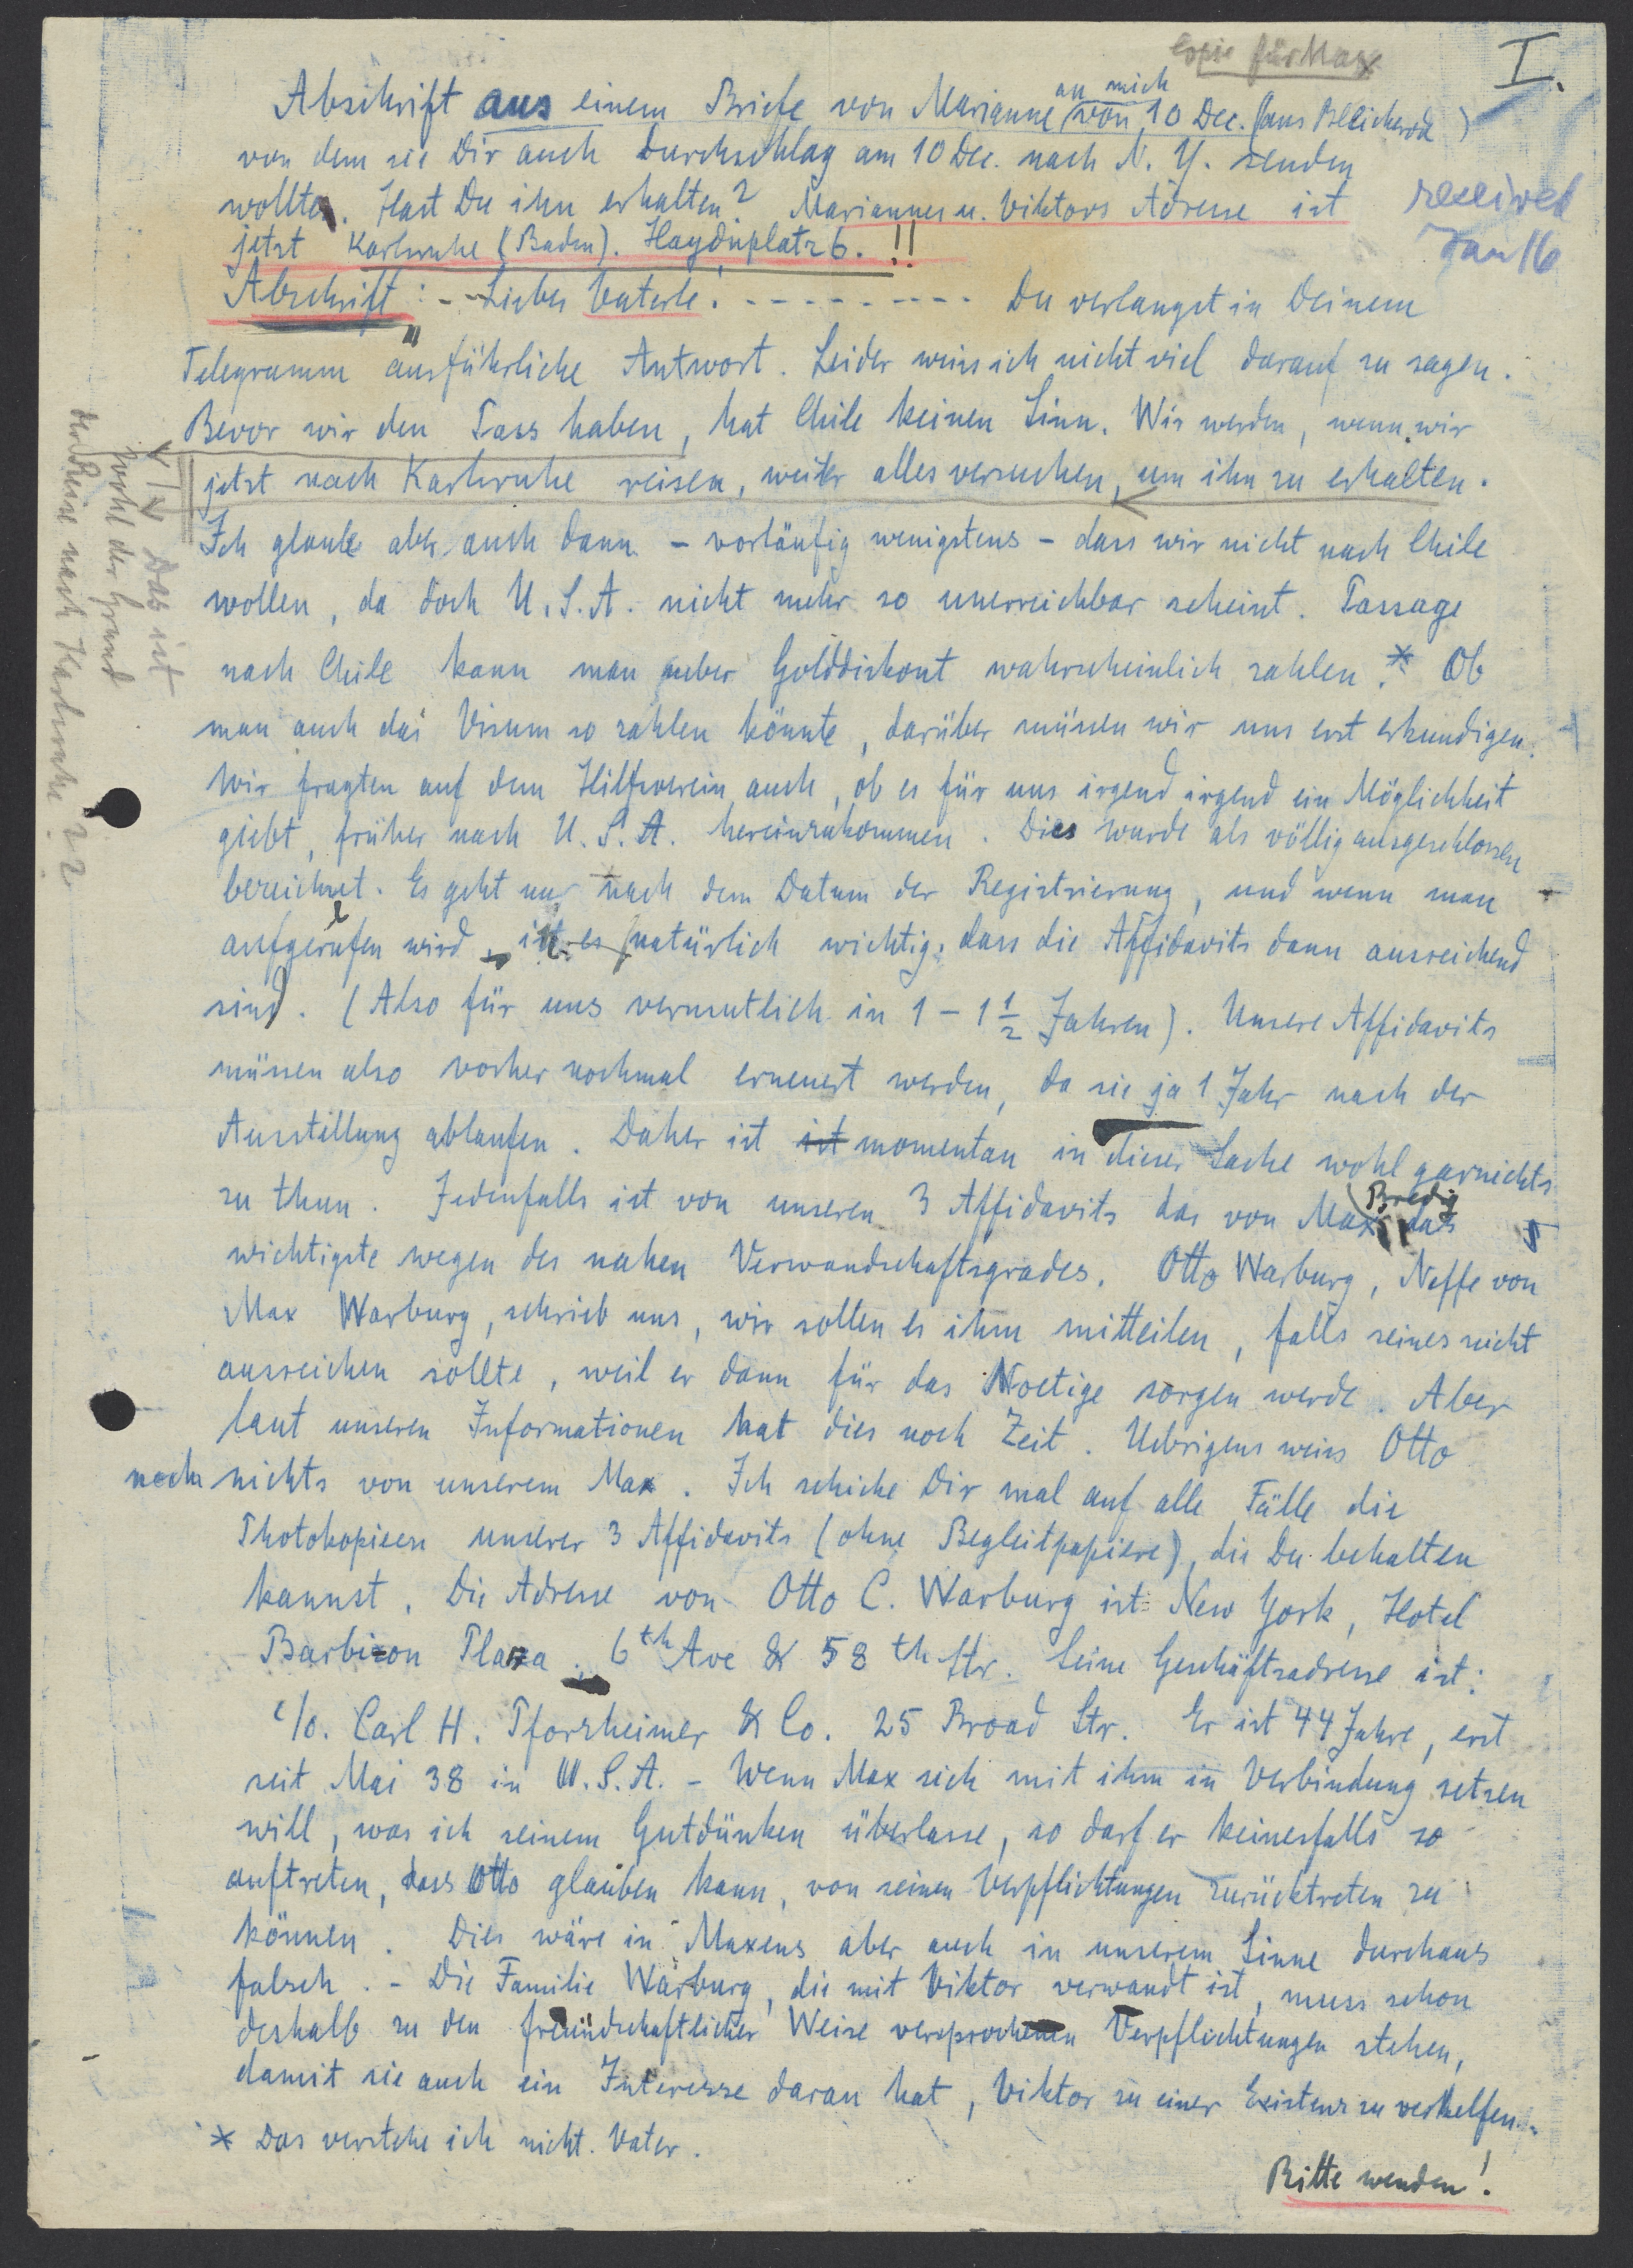 Copie für Max
I.
an mich
Abschrift aus einem Briefe von Marianne von 10 Dec. (aus Bleicherode)
von dem sie Dir auch Durchschlag am 10 Dec. nach N. Y. senden
wollte. Hast Du ihn erhalten? Mariannes u. Viktors Adresse ist
jetzt Karlsruhe (Baden). Haydnplatz 6. !!
received
Jan 16
Abschrift: -- Lieber Vaterle! - - - - - - - - - Du verlangst in Deinem
Telegramm ausführliche Antwort. Leider weiss ich nicht viel darauf zu sagen.
Bevor wir den Pass haben, hat Chile keinen Sinn. Wir werden, wenn wir
jetzt nach Karlsruhe reisen, weiter alles versuchen, um ihn zu erhalten.
Das ist
wohl der Grund
der Reise nach Karlsruhe??
Ich glaube aber auch dann - vorläufig wenigstens - dass wir nicht nach Chile
wollen, da doch U.S.A. nicht mehr so unerreichbar scheint. Passage
nach Chile kann man ueber Golddiskont wahrscheinlich zahlen.* Ob
man auch das Visum so zahlen könnte, darüber müssen wir uns erst erkundigen.
Wir fragten auf dem Hilfsverein auch, ob es für uns irgend irgend ein Möglichkeit
giebt, früher nach U.S.A. hereinzukommen. Dies wurde als völlig ausgeschlossen
bezeichnet. Es geht nur nach dem Datum der Registrierung, und wenn man
aufgerufen wird, ist es natürlich wichtig, dass die Affidavits dann ausreichend
sind. (Also für uns vermutlich in 1 - 1 1/2 Jahren). Unsere Affidavits
müssen also vorher nochmal erneuert werden, da sie ja 1 Jahr nach der
Ausstellung ablaufen. Daher ist ist momentan in dieser Sache wohl garnichts
zu thun. Jedenfalls ist von unseren 3 Affidavits das von Max Bredig das
wichtigste wegen des nahen Verwandschaftsgrades. Otto Warburg, Neffe von
Max Warburg, schrieb uns, wir sollen es ihm mitteilen, falls seines nicht
ausreichen sollte, weil er dann für das Noetige sorgen werde. Aber
laut unseren Informationen hat dies noch Zeit. Uebrigens weiss Otto
noch nichts von unserem Max. Ich schicke Dir mal auf alle Fälle die
Photokopieen unserer 3 Affidavits (ohne Begleitpapiere), die Du behalten
kannst. Die Adresse von Otto C. Warburg ist: New York, Hotel
Barbizon Plaza, 6th Ave & 58 th Str. Seine Geschäftsadresse ist:
c/o. Carl H. Pforzheimer & Co. 25 Broad Str. Er ist 44 Jahre, erst
seit Mai 38 in U.S.A. - Wenn Max sich mit ihm in Verbindung setzen
will, was ich seinem Gutdünken überlasse, so darf er keinesfalls so
auftreten, dass Otto glauben kann, von seinen Verpflichtungen zurücktreten zu
können. Dies wäre in Maxens aber auch in unserem Sinne durchaus
falsch. - Die Familie Warburg, die mit Viktor verwandt ist, muss schon
deshalb zu den freundschaftlicher Weise versprochenen Verpflichtungen stehen,
damit sie auch ein Interesse daran hat, Viktor zu einer Existenz zu verhelfen.
* Das verstehe ich nicht. Vater.
Bitte wenden!